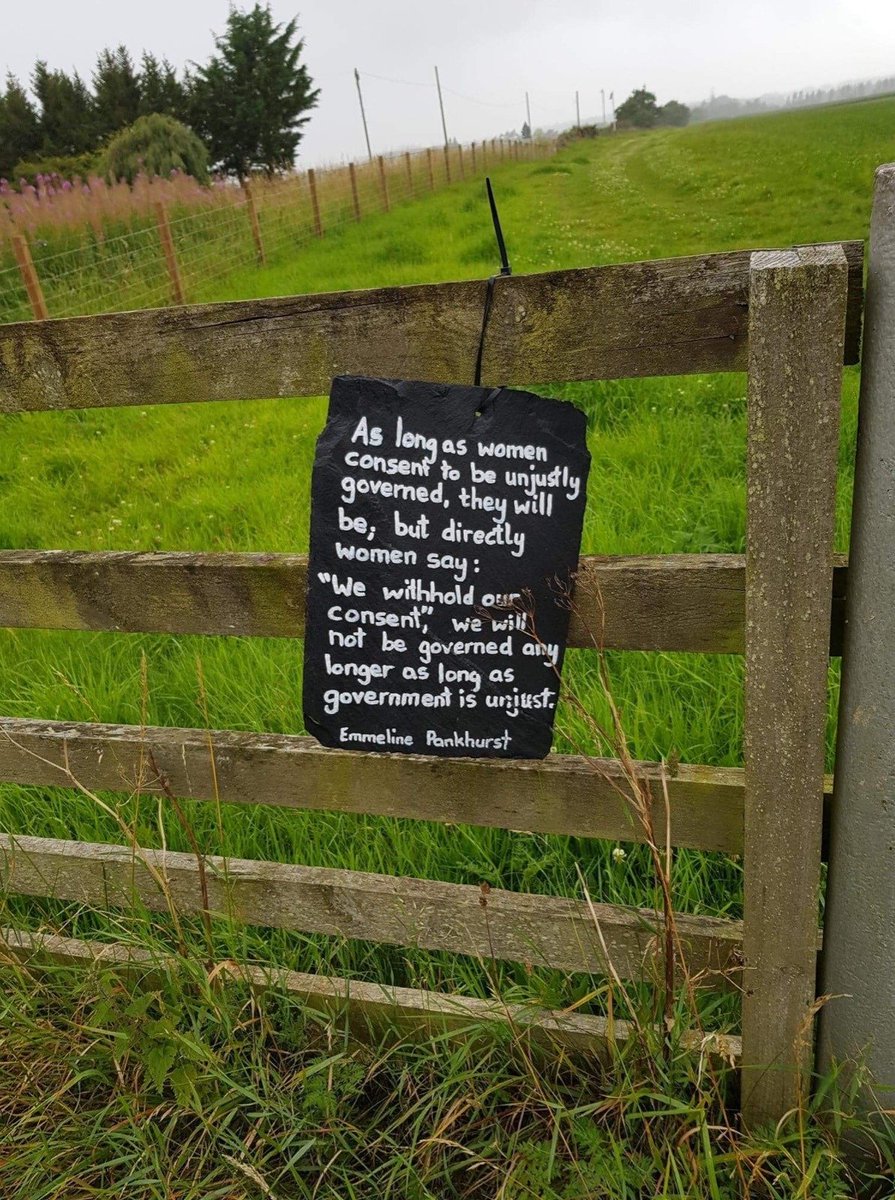 As long as women
consent to be unjustly
governed, they will
be; but directly
women say:
"We withhold our
consent", we will
not be governed any
longer as long as
government is unjust.
Emmeline Pankhurst